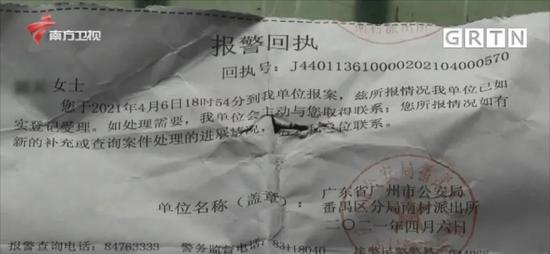 南方卫视
GRTN
报警回执
回执号：J4401136100002021040005​70
女士
您于2021年4月6日18时54分到我单位报案，兹所报情况我单位已如
实登记受理。如处理需要，我单位会主动与您取得联系；您所报情况如有
新的补充或查询案件处理的进展情况，单位联系。
单位名称（盖章）：
广东省广州市公安局
番禺区分局南村派出所
二〇二一年四月六日
报警查询电话：84763333 警务监督电话：83118040